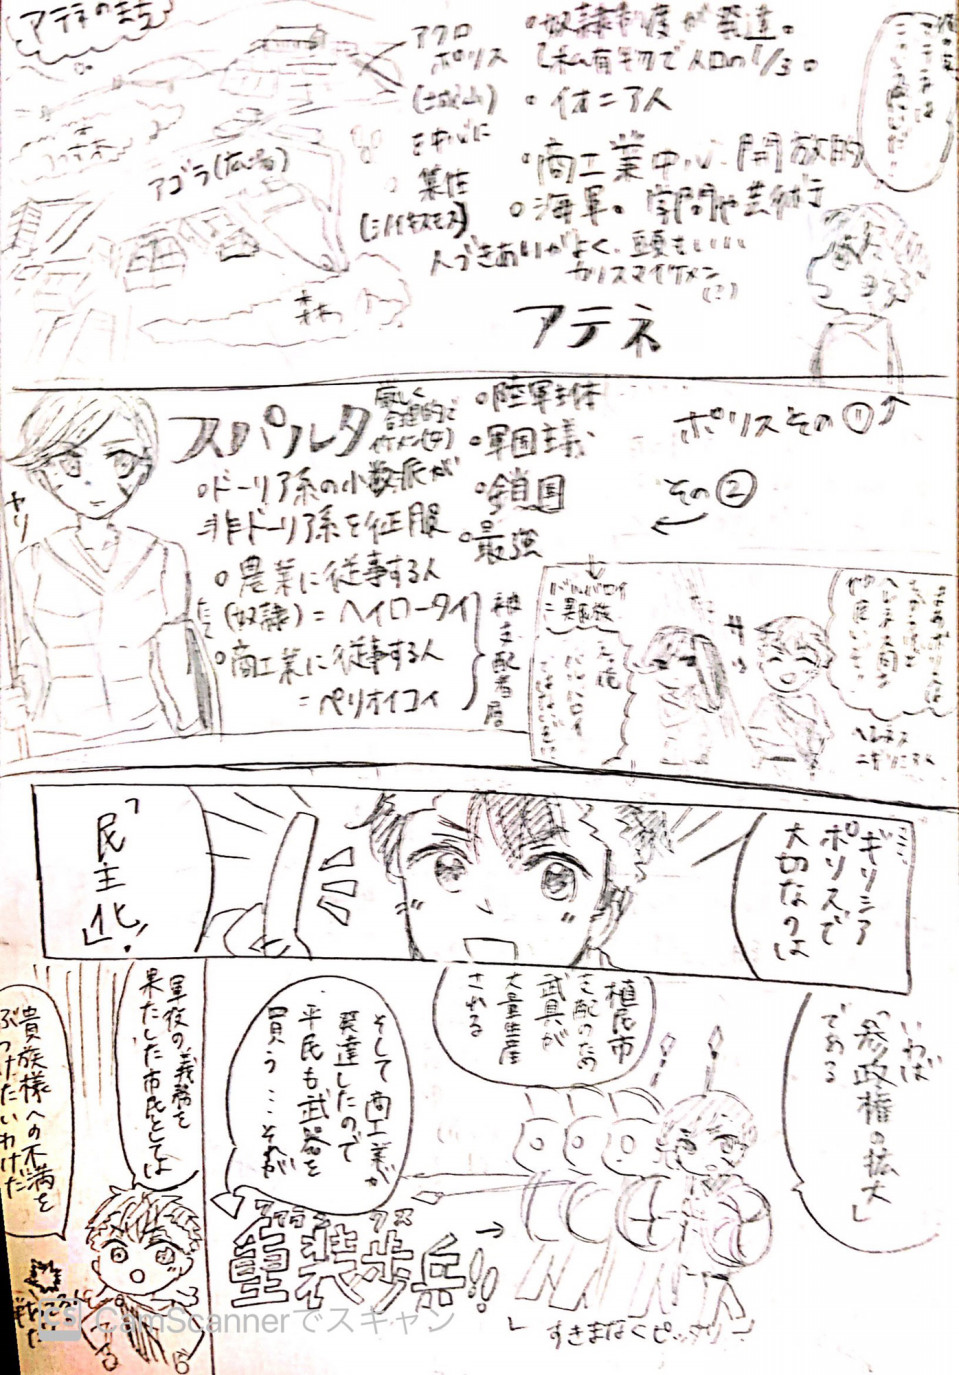 アテネのまち
アクロ
ポリス
(城山)
を中心に
集住
[シノイキスモス]
アゴラ(広場)
○奴隷制度が発達。
[私有物で人口の1/3。
○イオニア人
○商工業中心、開放的
○海軍。学問や芸術
人づきあいがよく、頭もいい
カリスマイケメン
(?)
アテネ
ポリスその①
その②
スパルタ
厳しく
合理的で
イケメン(?)
○ドーリア系の少数派が
非ドーリア系を征服
○農業に従事する人
(奴隷)=ヘイロータイ
○商工業に従事する人
=ペリオイコイ
被支配者層
○陸軍主体
○軍国主義
○鎖国
○最強
ヤリ
たて
バルバロイ
=異民族
ギリシア
ポリスで
大切なのは
「民主化」!
いわば
「参政権の拡大」
である
植民市
支配のため
武具が
大量生産
される
そして商工業が
発達したので
平民も武器を
買う…それが
ファランクス
重装歩兵!!
すきまなくピッタリ
軍役の義務を
果たした市民としては
貴族様への不満を
ぶつけたいわけだ
CS CamScannerでスキャン